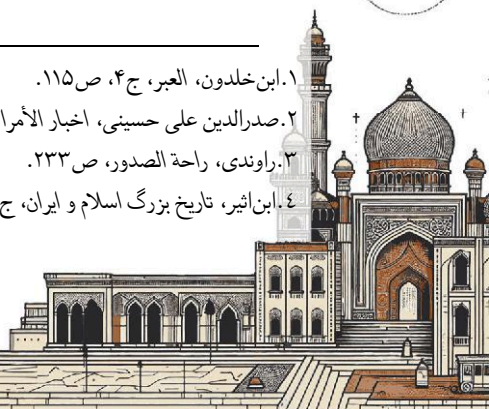 ۱.ابن‌خلدون، العبر، ج۴، ص۱۱۵.
۲.صدرالدین علی حسینی، اخبار الأمرا
۳.راوندی، راحة الصدور، ص۲۳۳.
٤.ابن‌اثیر، تاریخ بزرگ اسلام و ایران، ج